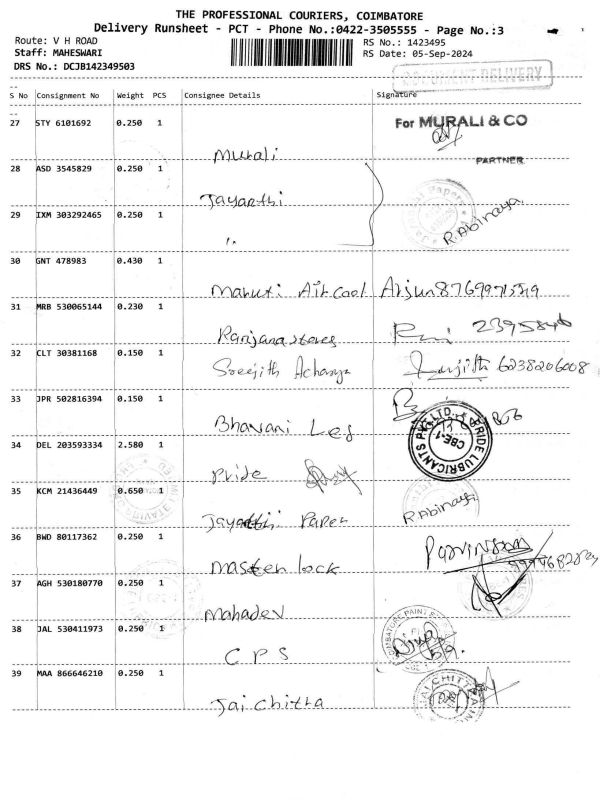 THE PROFESSIONAL COURIERS, COIMBATORE
Delivery Runsheet - PCT - Phone No.:0422-3505555 - Page No.:3
Route: V H ROAD
RS No.: 1423495
Staff: MAHESWARI
RS Date: 05-Sep-2024
DRS No.: DCJB142349503
DOCUMENT DELIVERY
S No Consignment No Weight PCS Consignee Details Signature
27 STY 6101692 0.250 1 For MURALI & CO
Murali
PARTNER
28 ASD 3545829 0.250 1
Jayanthi
29 IXM 303292465 0.250 1 R.Abinaya
"
30 GNT 478983 0.430 1
Maruti Air Cool Arjun 8769971549
31 MRB 530065144 0.230 1
Ranjana stores 2395846
32 CLT 30381168 0.150 1
Sreejith Acharya 6238206008
33 JPR 502816394 0.150 1
Bhavani Les
PRIDE LUBRICANTS PVT. LTD. CBE-1
34 DEL 203593334 2.580 1
Pride
35 KCM 21436449 0.650 1
Jayanthi Paper R.Abinaya
36 BWD 80117362 0.250 1
Masten lock
37 AGH 530180770 0.250 1
Mahadev
38 JAL 530411973 0.250 1
CPS 5/9.
39 MAA 866646210 0.250 1
Jai Chitra